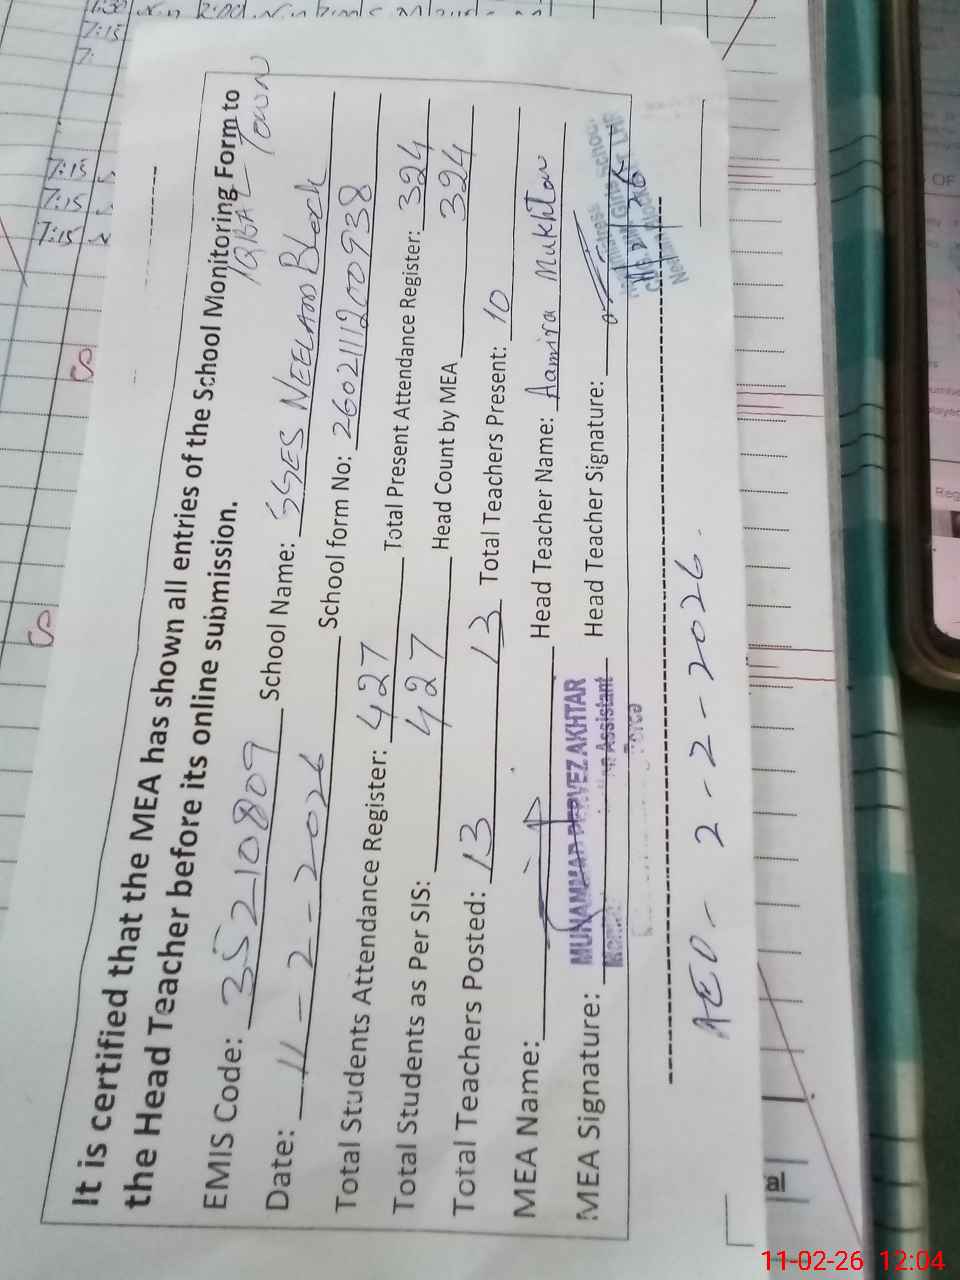 It is certified that the MEA has shown all entries of the School Monitoring Form to
the Head Teacher before its online submission.
IQBAL TOWN
EMIS Code: 35210809 School Name: GGES NEELAM Block
Date: 11-2-2026 School form No: 2602111200938
Total Students Attendance Register: 427 Total Present Attendance Register: 324
Total Students as Per SIS: 427 Head Count by MEA 324
Total Teachers Posted: 13 13 Total Teachers Present: 10
MEA Name: Head Teacher Name: Aamira Mukhtar
MUHAMMAD PERVEZ AKHTAR
MEA Signature: Assistant Head Teacher Signature:
11/2/26
AEO - 2-2-2026.
7:30
7:15
7:15
7:15
7:15
11-02-26 12:04